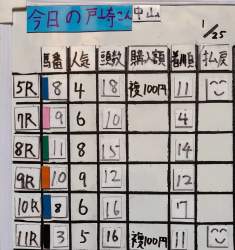 今日の戸崎さん 中山 1/25
馬番 人気 頭数 購入額 着順 払戻
5R 8 4 18 複100円 11
7R 9 6 10 4
8R 11 8 15 14
9R 10 9 12 12
10R 8 6 16 7
11R 3 5 16 複100円 11